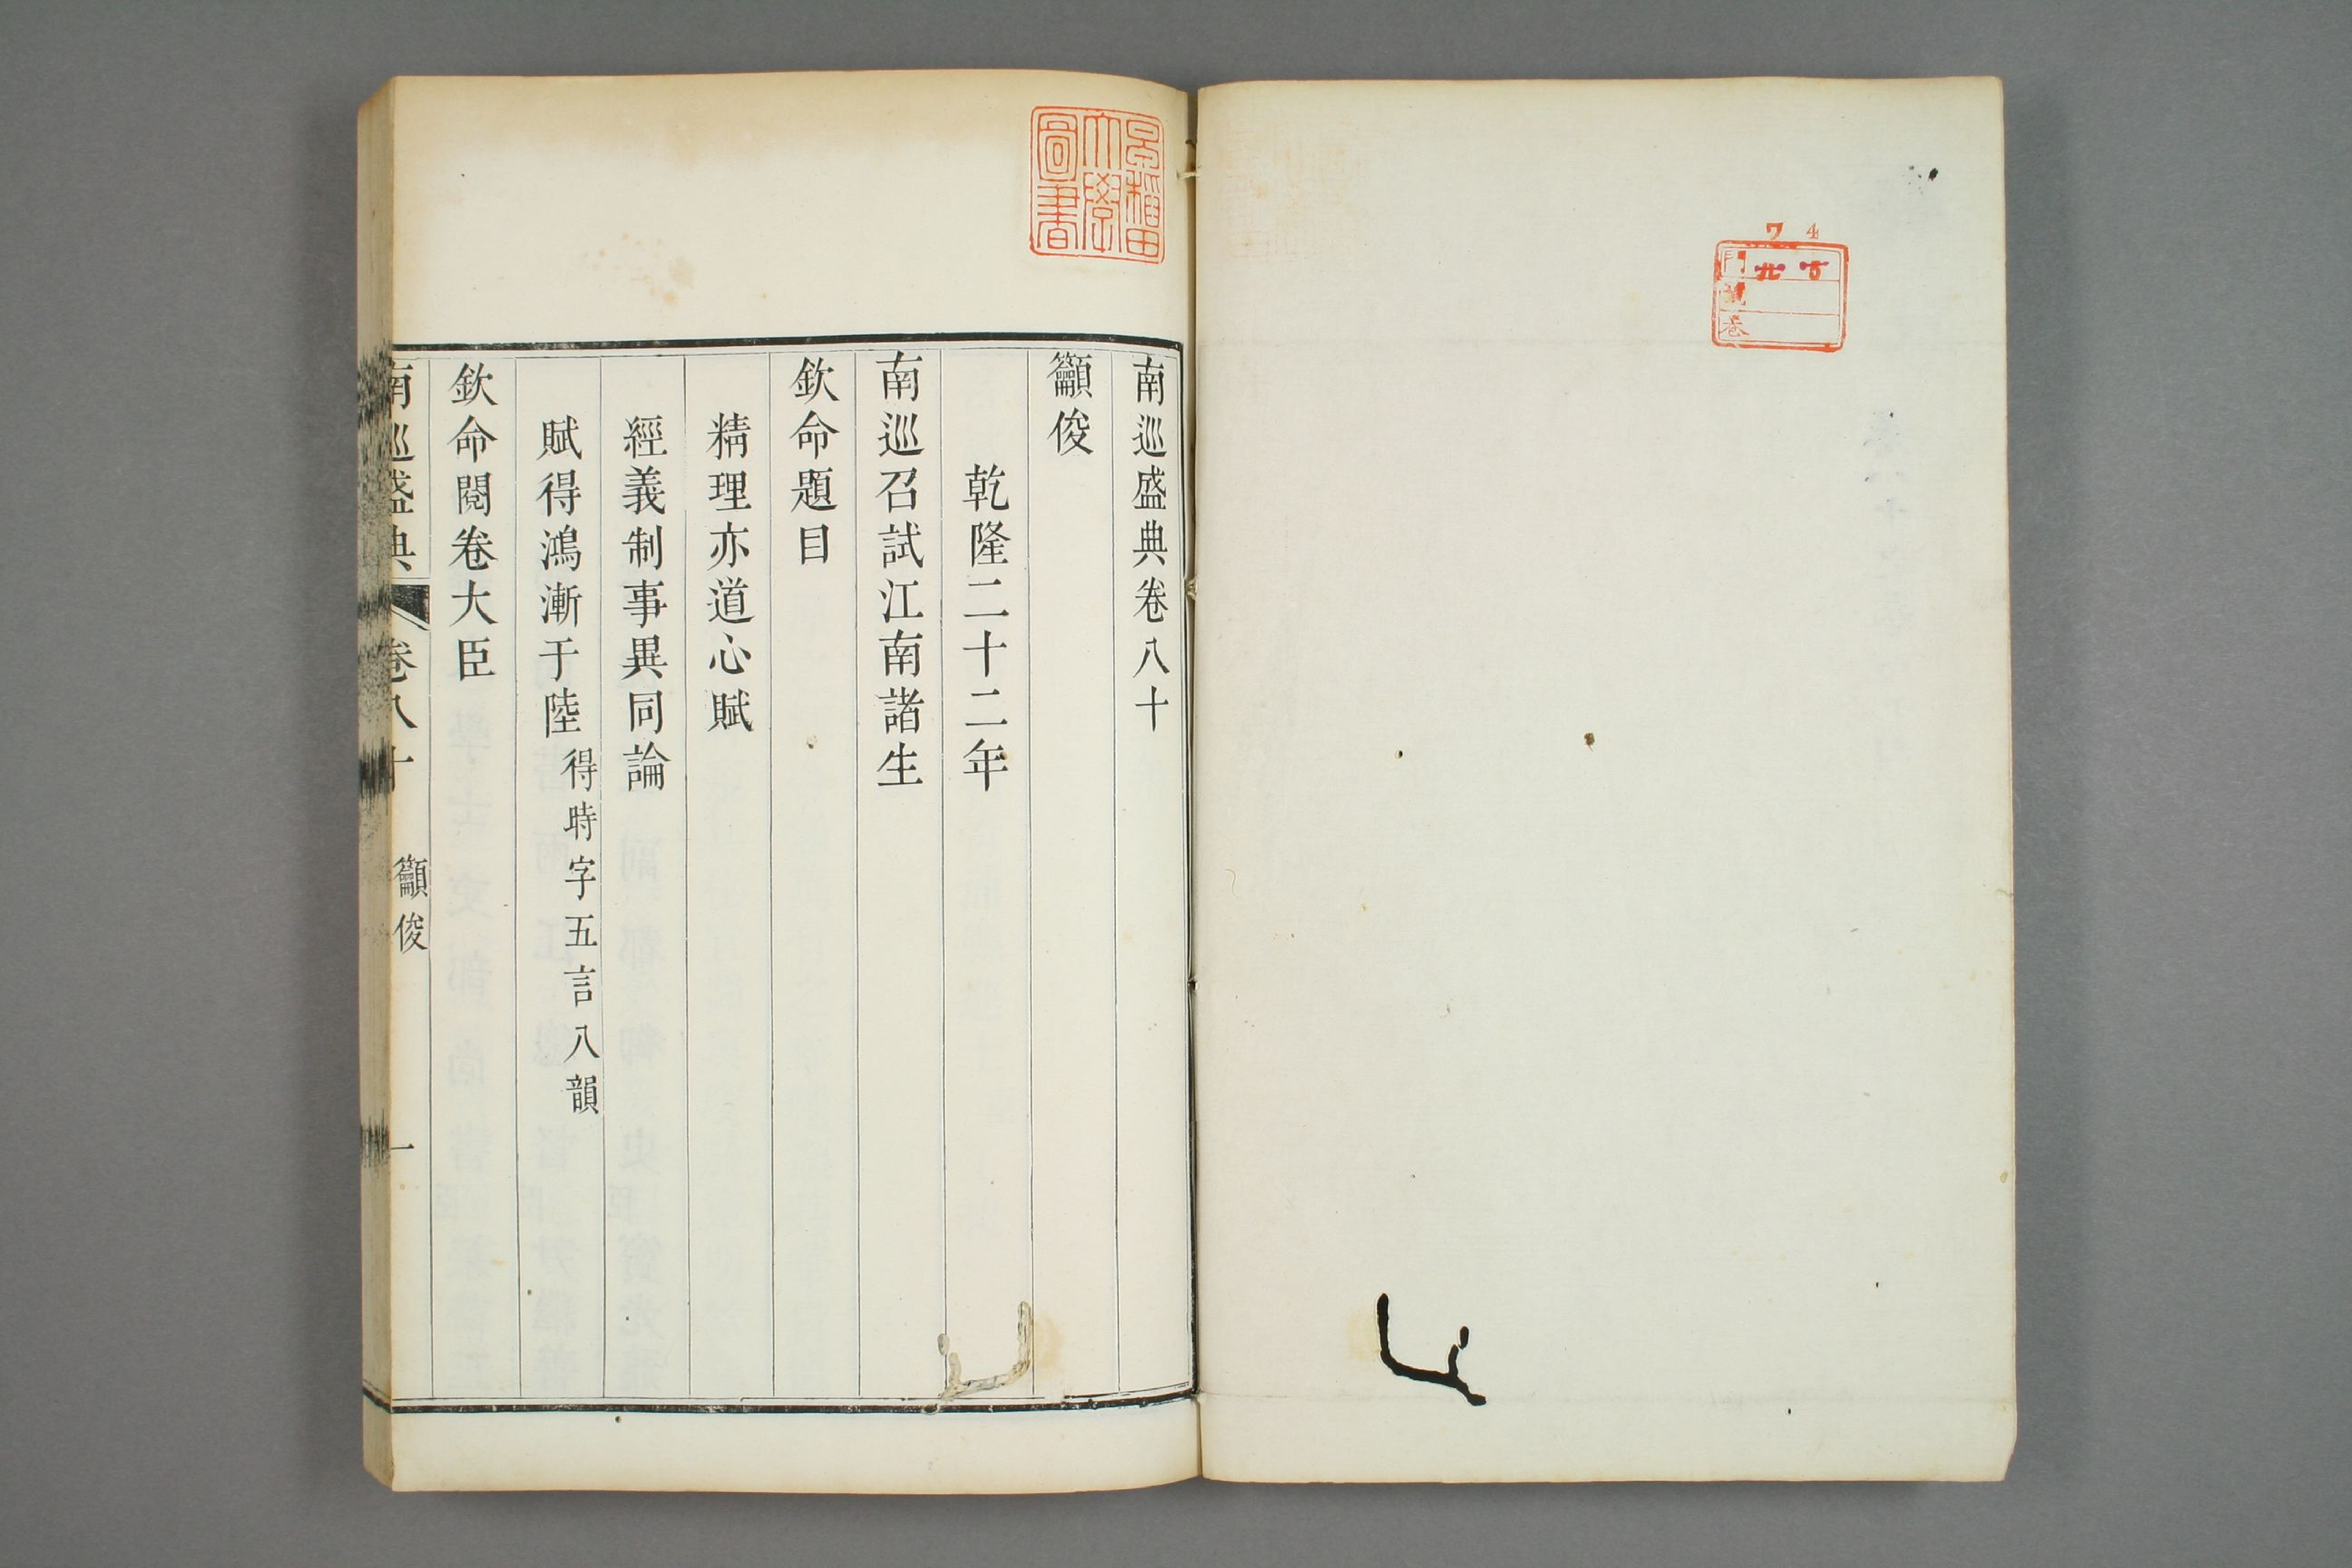 7 4
門
號
卷
早稻田
大學
圖書
南巡盛典卷八十
籲俊
乾隆二十二年
南巡召試江南諸生
欽命題目
精理亦道心賦
經義制事異同論
賦得鴻漸于陸得時字五言八韻
欽命閱卷大臣
南巡盛典 卷八十 籲俊 一